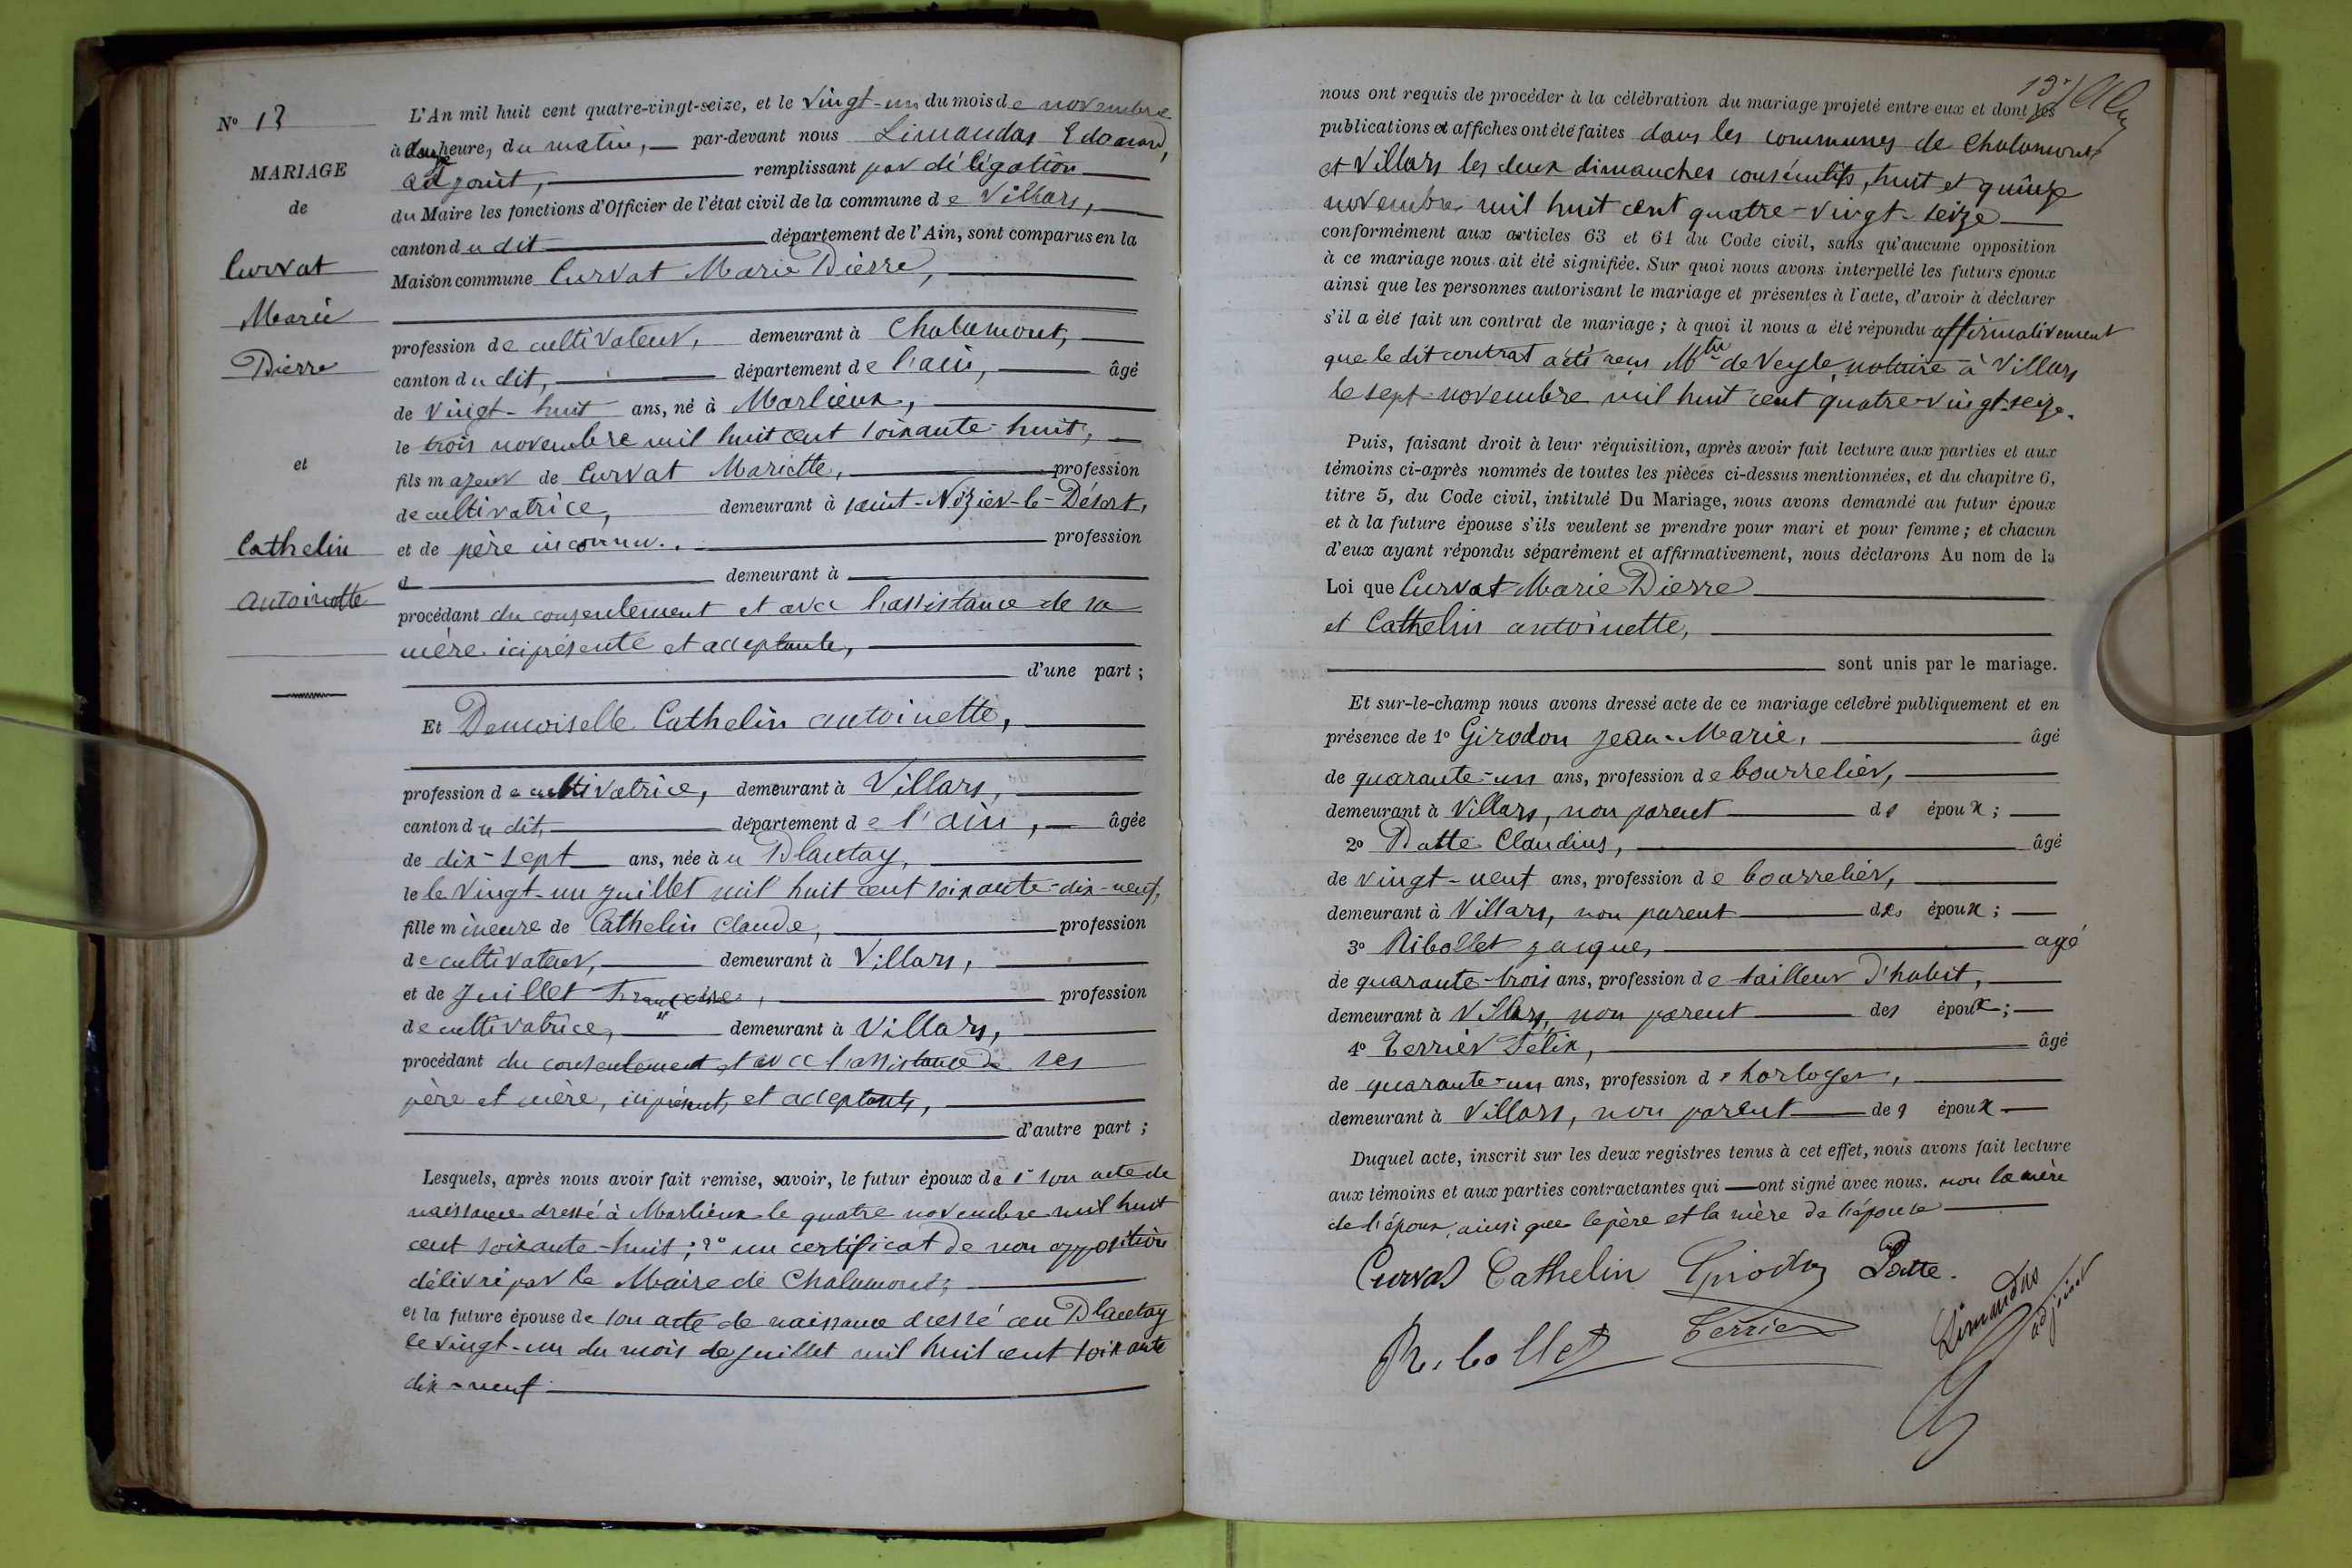 N° 13
MARIAGE
de
Curvat
Marie
Pierre
et
Cathelin
Antoinette
L'An mil huit cent quatre-vingt-seize, et le vingt-un du mois de novembre
à heure, du matin, par-devant nous Limandas Edouard,
adjoint, remplissant par délégation
du Maire les fonctions d'Officier de l'état civil de la commune de Villars,
canton du dit département de l'Ain, sont comparus en la
Maison commune Curvat Marie Pierre,
profession de cultivateur, demeurant à Chalamont,
canton du dit, département de l'ain, âgé
de vingt-huit ans, né à Marlieux,
le trois novembre mil huit cent soixante-huit,
fils majeur de Curvat Mariette, profession
de cultivatrice, demeurant à saint-Nizier-le-Désert,
et de père inconnu. profession
d demeurant à
procédant du consentement et avec l'assistance de sa
mère ici présente et acceptante,
d'une part ;
Et Demoiselle Cathelin antoinette,
profession de cultivatrice, demeurant à Villars,
canton du dit, département de l'ain, âgée
de dix-sept ans, née à u Plantay,
le le vingt-un juillet mil huit cent soixante-dix-neuf,
fille mineure de Cathelin Claude, profession
de cultivateur, demeurant à Villars,
et de Juillet Françoise, profession
de cultivatrice, demeurant à Villars,
procédant du consentement et avec l'assistance de ses
père et mère, ici présents et acceptants,
d'autre part ;
Lesquels, après nous avoir fait remise, savoir, le futur époux de 1° son acte de
naissance dressé à Marlieux le quatre novembre mil huit
cent soixante-huit ; 2° un certificat de non opposition
délivré par le Maire de Chalamont ;
et la future épouse de son acte de naissance dressé au Plantay
le vingt-un du mois de juillet mil huit cent soixante
dix-neuf
13
nous ont requis de procéder à la célébration du mariage projeté entre eux et dont les
publications et affiches ont été faites dans les communes de Chalamont
et Villars les deux dimanches consécutifs, huit et quinze
novembre mil huit cent quatre-vingt-seize
conformément aux articles 63 et 64 du Code civil, sans qu'aucune opposition
à ce mariage nous ait été signifiée. Sur quoi nous avons interpellé les futurs époux
ainsi que les personnes autorisant le mariage et présentes à l'acte, d'avoir à déclarer
s'il a été fait un contrat de mariage ; à quoi il nous a été répondu affirmativement
que le dit contrat a été reçu Mtre de Veyle, notaire à Villars
le sept novembre mil huit cent quatre-vingt-seize.
Puis, faisant droit à leur réquisition, après avoir fait lecture aux parties et aux
témoins ci-après nommés de toutes les pièces ci-dessus mentionnées, et du chapitre 6,
titre 5, du Code civil, intitulé Du Mariage, nous avons demandé au futur époux
et à la future épouse s'ils veulent se prendre pour mari et pour femme ; et chacun
d'eux ayant répondu séparément et affirmativement, nous déclarons Au nom de la
Loi que Curvat Marie Pierre
et Cathelin antoinette,
sont unis par le mariage.
Et sur-le-champ nous avons dressé acte de ce mariage célébré publiquement et en
présence de 1° Girodon Jean-Marie, âgé
de quarante-un ans, profession de bourrelier,
demeurant à Villars, non parent des époux ;
2° Patte Claudius, âgé
de vingt-neuf ans, profession de bourrelier,
demeurant à Villars, non parent des époux ;
3° Ribollet Jacque, agé
de quarante-trois ans, profession de tailleur d'habit,
demeurant à Villars, non parent des époux ;
4° Terrier Félix, âgé
de quarante-un ans, profession de horloger,
demeurant à Villars, non parent des époux
Duquel acte, inscrit sur les deux registres tenus à cet effet, nous avons fait lecture
aux témoins et aux parties contractantes qui ont signé avec nous. non la mère
de l'époux, ainsi que le père et la mère de l'épouse
Curvat Cathelin Girodon Patte.
Ribollet Terrier Limandas
adjoint